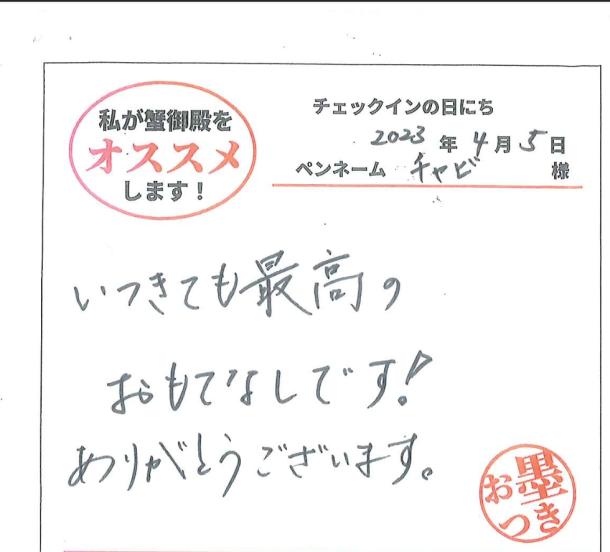 私が蟹御殿を
オススメ
します!
チェックインの日にち
2023 年 4 月 5 日
ペンネーム チャビ 様
いつきても最高の
おもてなしです!
ありがとうございます。
お墨
つき